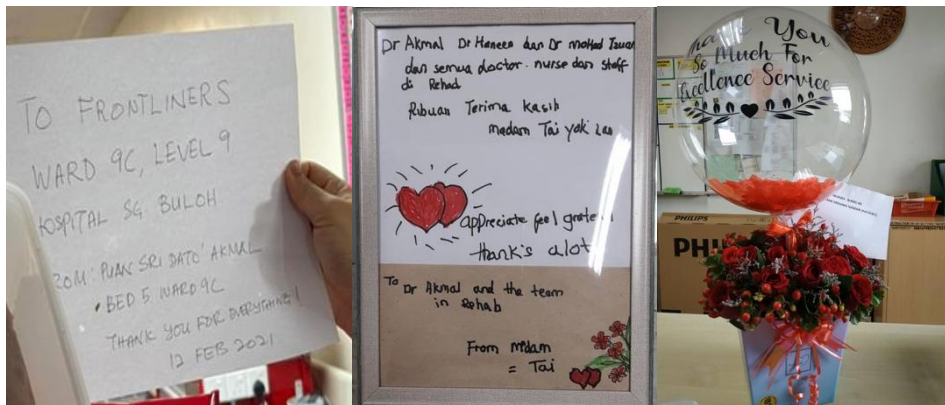 TO FRONTLINERS
WARD 9C, LEVEL 9
HOSPITAL SG BULOH
ROM: 'PUAN SRI DATO' AKMAL
• BED 5 WARD 9C
THANK YOU FOR EVERYTHING!
12 FEB 2021
Dr Akmal Dr Haneen dan Dr mohad
dan semua doctor. nurse dan staff
di Rehad
Ribuan Terima Kasih
madam Tai yok Lan
appreciate feel grateful
thank's alot
To Dr Akmal and the team
in Rehab
From madam
= Tai
Thank You
So Much For
Excellence Service
PHILIPS
PHI